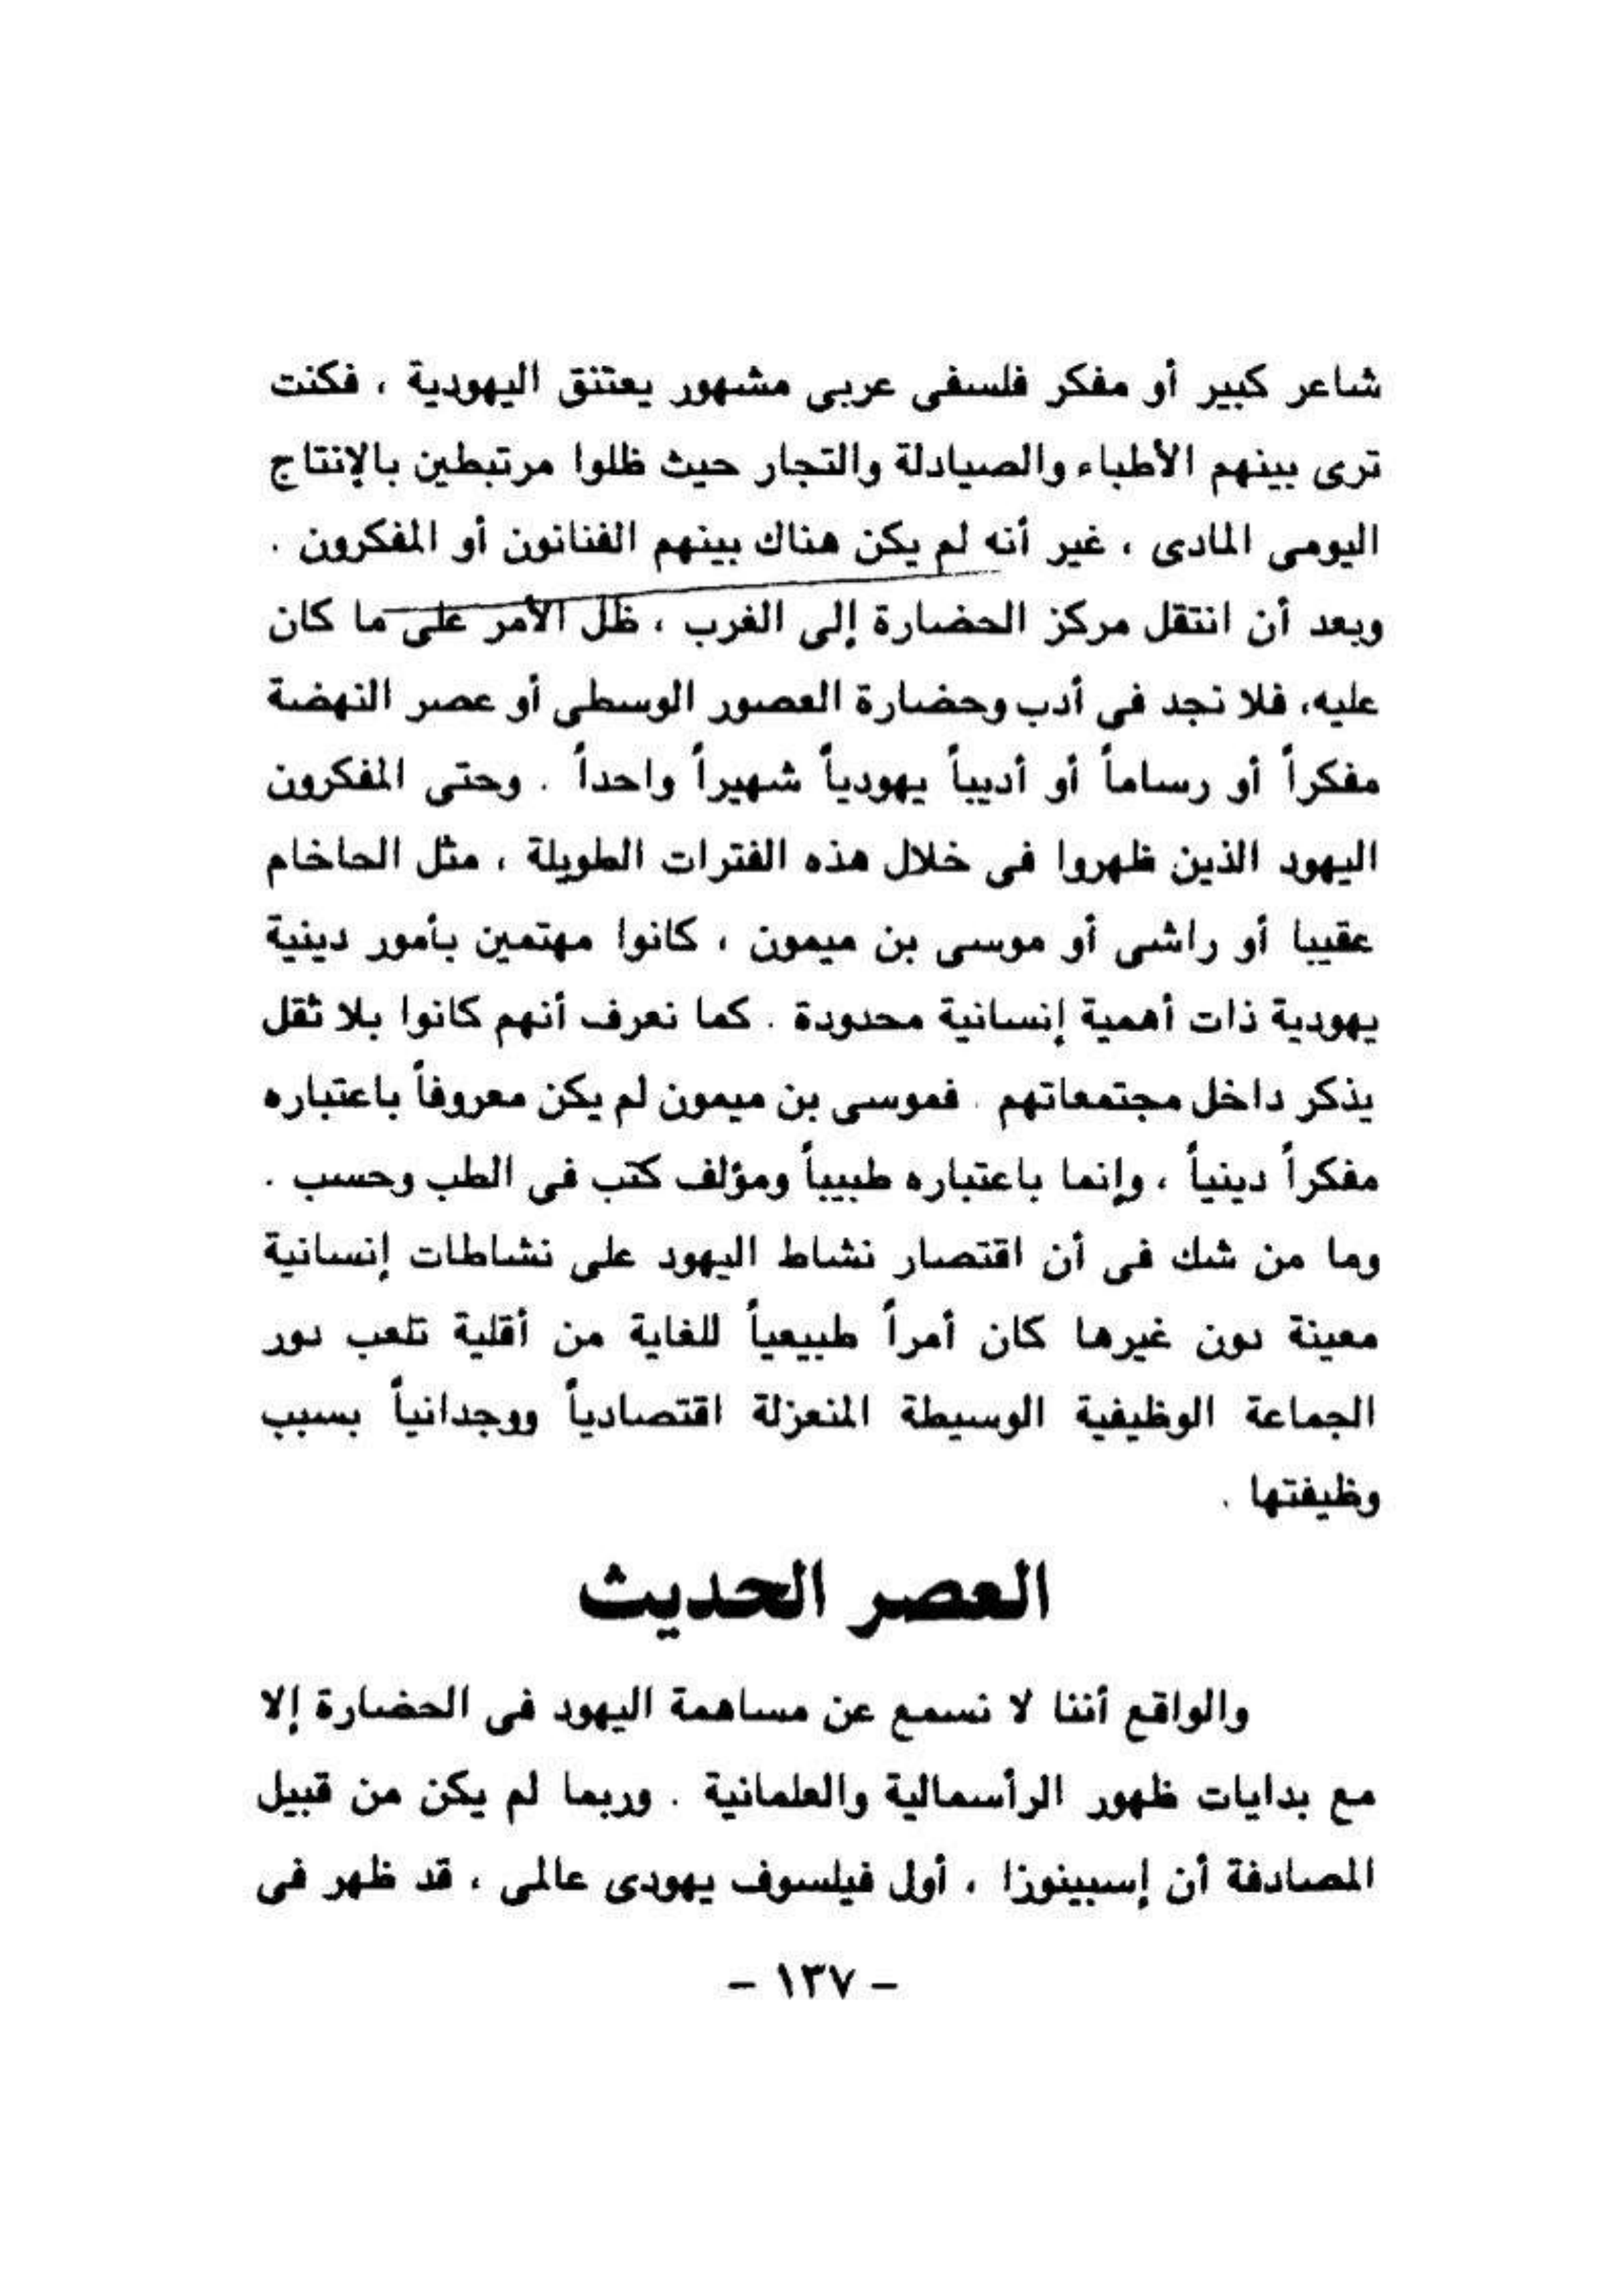 شاعر كبير أو مفكر فلسفى عربى مشهور يعتنق اليهودية ، فكنت
ترى بينهم الأطباء والصيادلة والتجار حيث ظلوا مرتبطين بالإنتاج
اليومى المادى ، غير أنه لم يكن هناك بينهم الفنانون أو المفكرون .
وبعد أن انتقل مركز الحضارة إلى الغرب ، ظل الأمر على ما كان
عليه، فلا نجد فى أدب وحضارة العصور الوسطى أو عصر النهضة
مفكراً أو رساماً أو أديباً يهودياً شهيراً واحداً . وحتى المفكرون
اليهود الذين ظهروا فى خلال هذه الفترات الطويلة ، مثل الحاخام
عقيبا أو راشى أو موسى بن ميمون ، كانوا مهتمين بأمور دينية
يهودية ذات أهمية إنسانية محدودة . كما نعرف أنهم كانوا بلا ثقل
يذكر داخل مجتمعاتهم . فموسى بن ميمون لم يكن معروفاً باعتباره
مفكراً دينياً ، وإنما باعتباره طبيباً ومؤلف كتب فى الطب وحسب .
وما من شك فى أن اقتصار نشاط اليهود على نشاطات إنسانية
معينة دون غيرها كان أمراً طبيعياً للغاية من أقلية تلعب دور
الجماعة الوظيفية الوسيطة المنعزلة اقتصادياً ووجدانياً بسبب
وظيفتها .
العصر الحديث
والواقع أننا لا نسمع عن مساهمة اليهود فى الحضارة إلا
مع بدايات ظهور الرأسمالية والعلمانية . وربما لم يكن من قبيل
المصادفة أن إسبينوزا ، أول فيلسوف يهودى عالمى ، قد ظهر فى
- ١٣٧ -